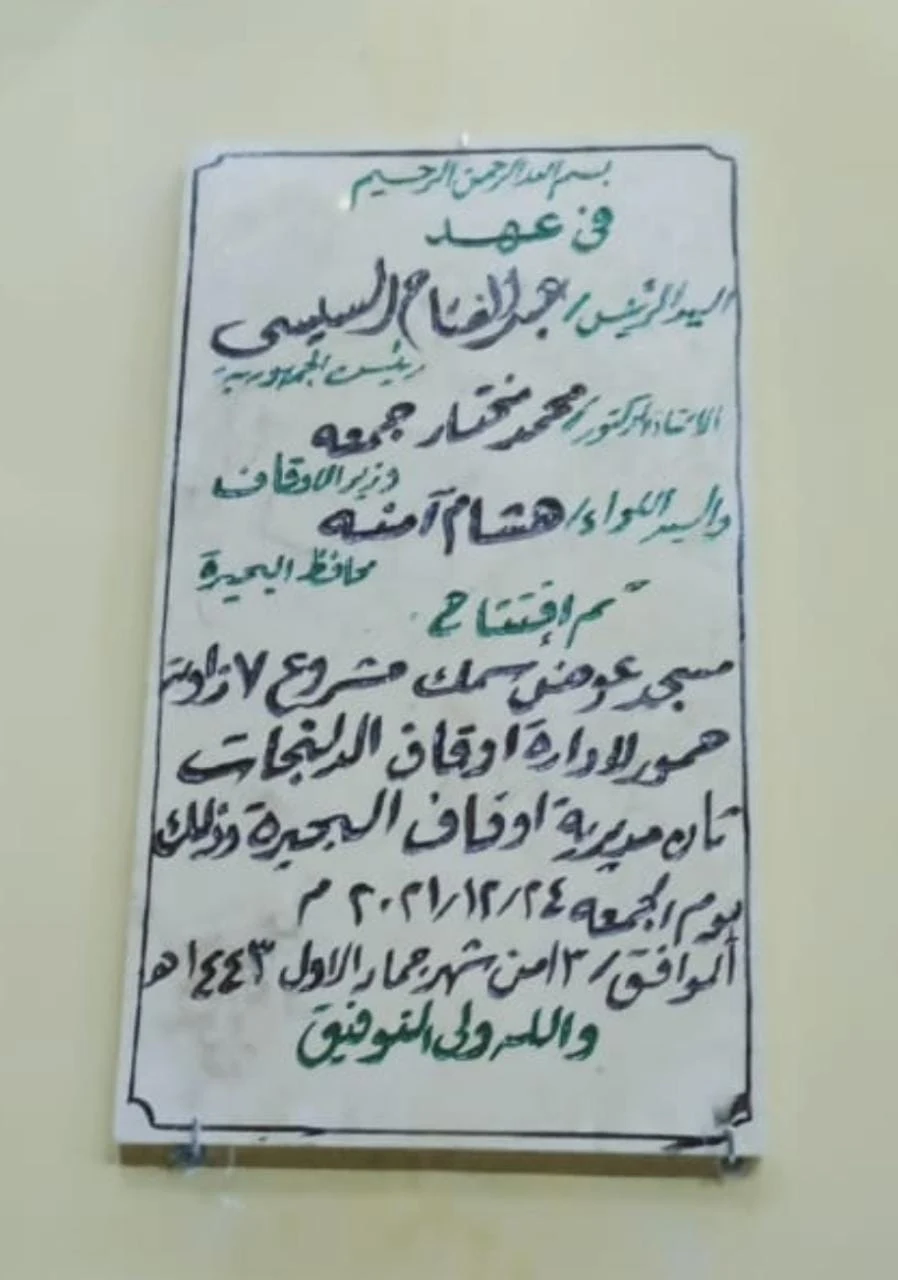 بسم الله الرحمن الرحيم
في عهد
السيد الرئيس / عبد الفتاح السيسي
رئيس الجمهورية
الاستاذ الدكتور / محمد مختار جمعه
وزير الاوقاف
والسيد اللواء / هشام آمنه
محافظ البحيرة
تم إفتتاح
مسجد عوض سمك مشروع ٧ زاوية
حمور لادارة اوقاف الدلنجات
مديرية اوقاف البحيرة وذلك
يوم الجمعه ٢٠٢١/١٢/٢٤ م
الموافق / من شهر جماد الاول ١٤٤٣ هـ
والله ولى التوفيق